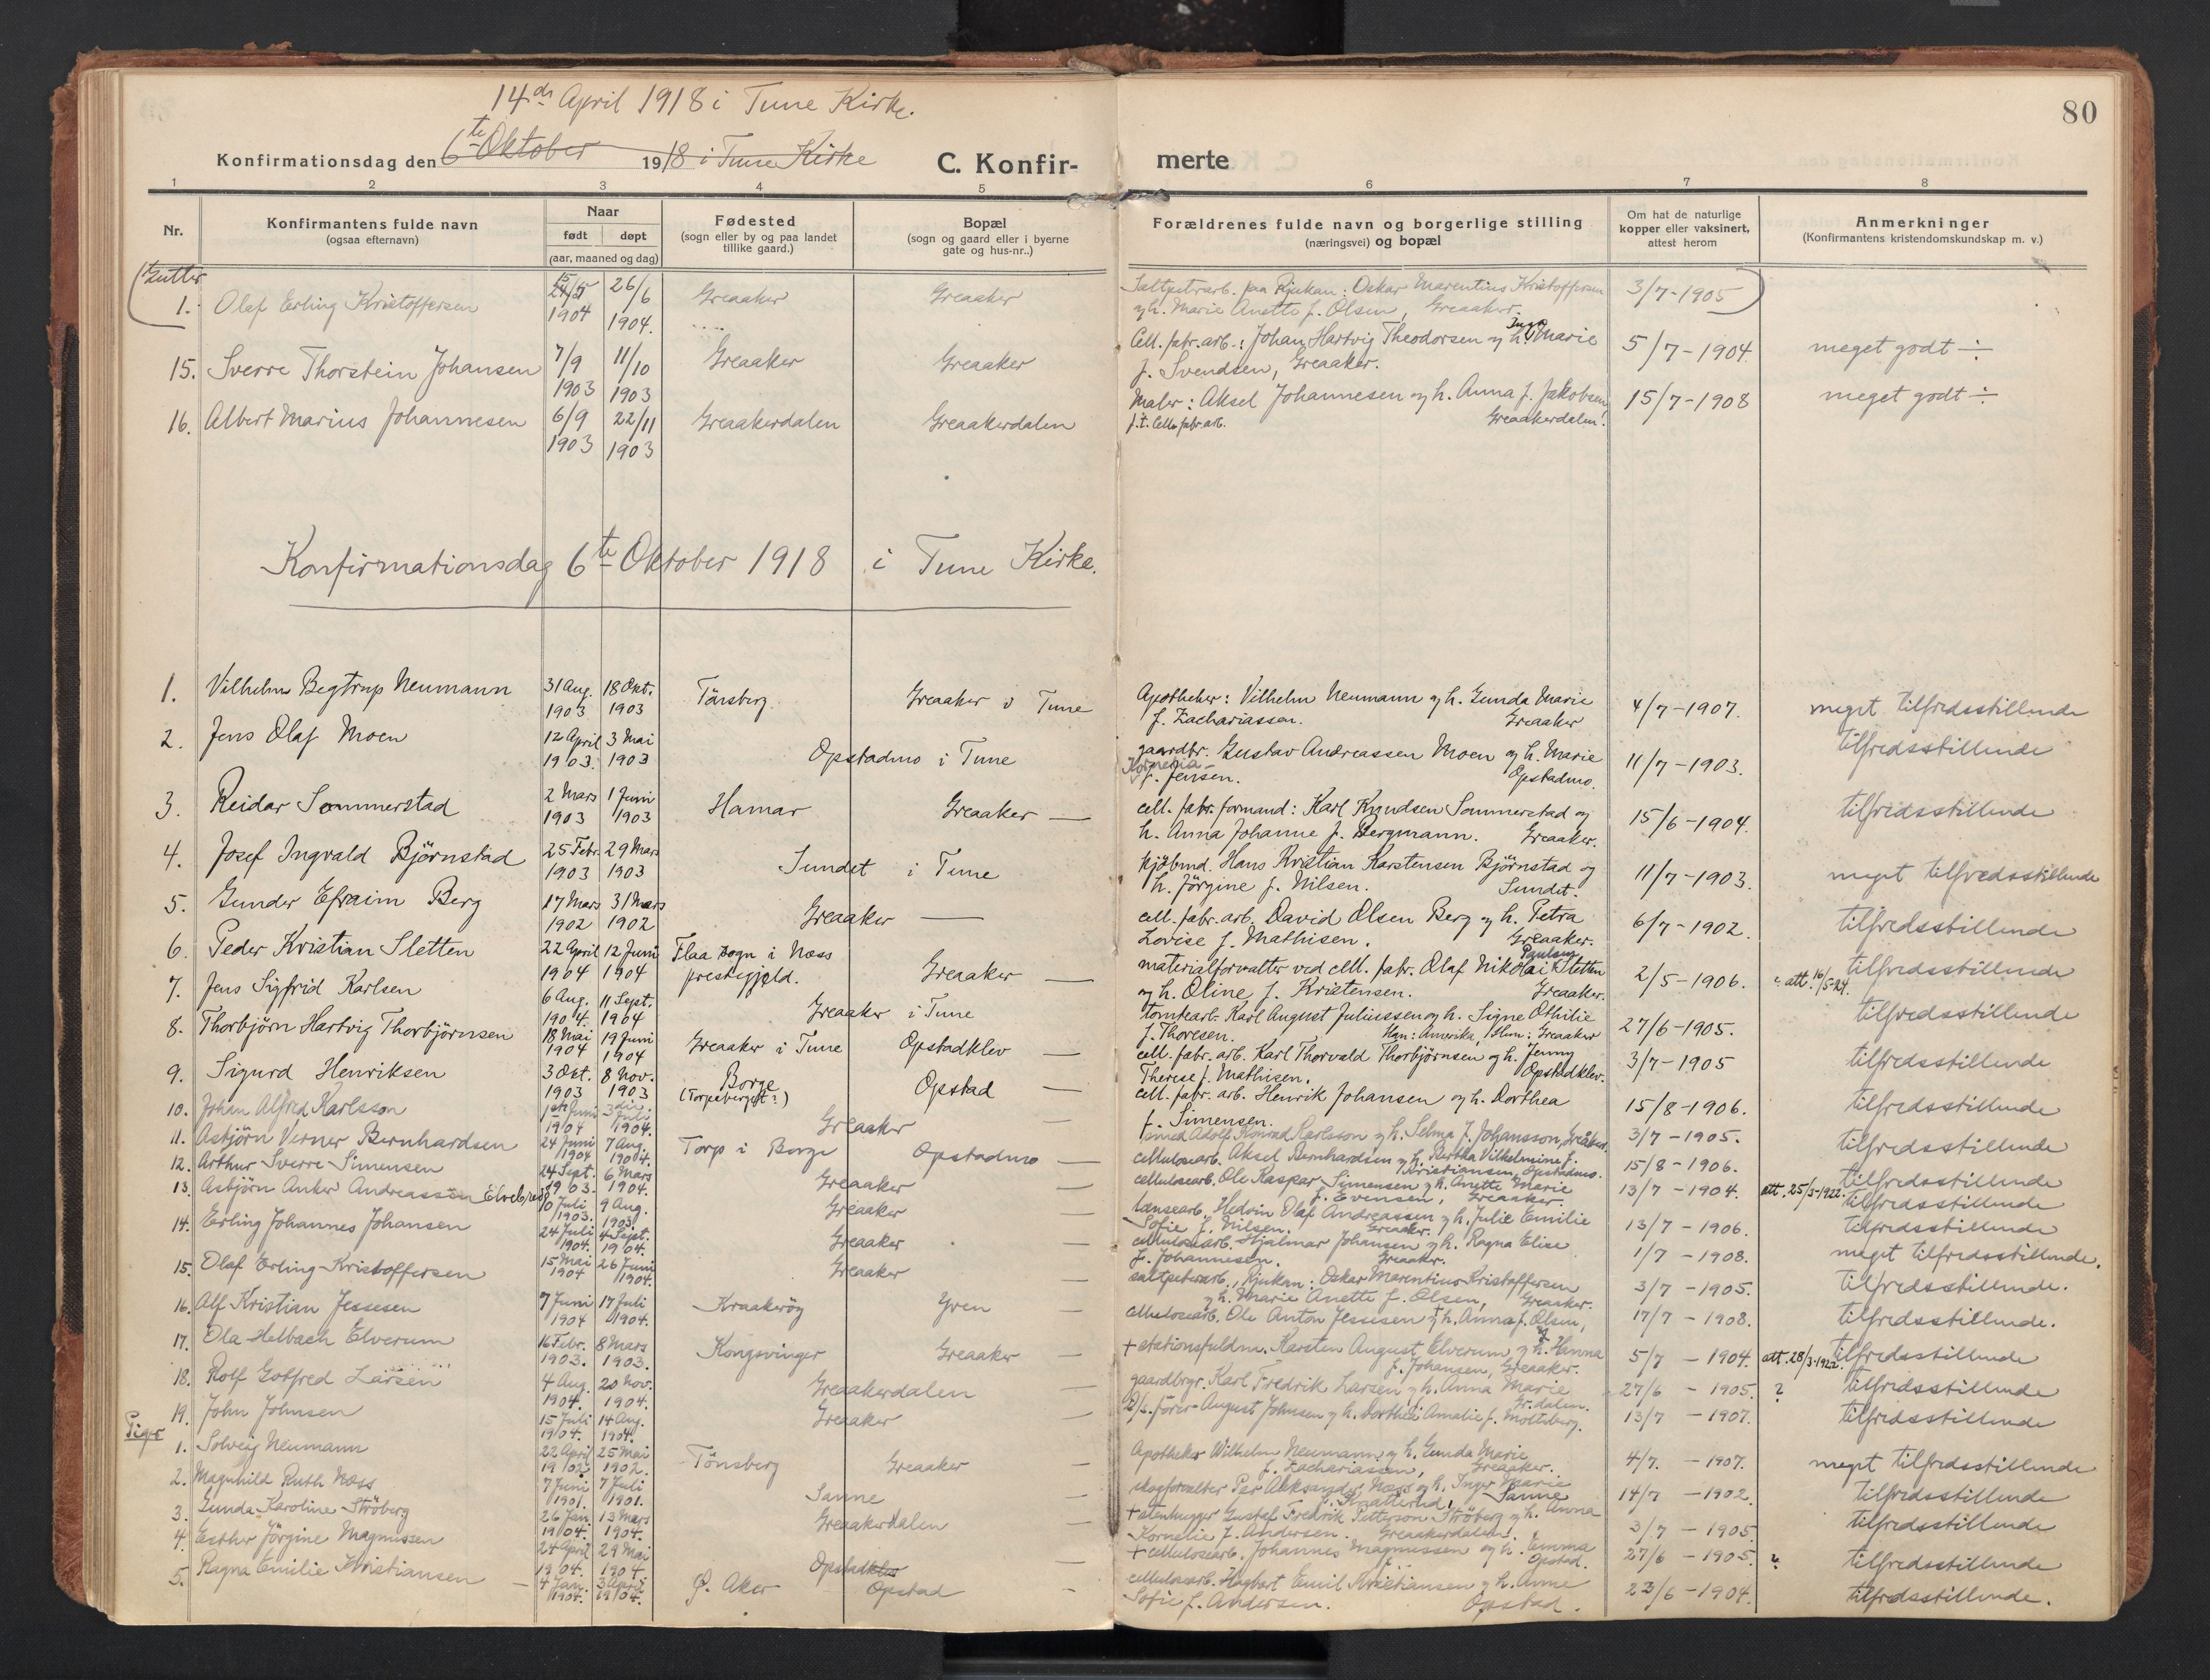 14de April 1918 i Tune Kirke.
80
Konfirmationsdag den 6te Oktober 1918 i Tune Kirke
C. Konfir-
merte
1 2 3 4 5 6 7 8
Nr.
Konfirmantens fulde navn
(ogsaa efternavn)
Naar
født døpt
(aar, maaned og dag)
Fødested
(sogn eller by og paa landet
tillike gaard.)
Bopæl
(sogn og gaard eller i byerne
gate og hus-nr..)
Forældrenes fulde navn og borgerlige stilling
(næringsvei) og bopæl
Om hat de naturlige
kopper eller vaksinert,
attest herom
Anmerkninger
(Konfirmantens kristendomskundskap m. v.)
Gutter
1. Olaf Erling Kristoffersen 15/5 1904 26/6 1904. Greaaker Greaaker Saltpeterarb. paa Rjukan: Oskar Marentius Kristoffersen
og h. Marie Anette f. Olsen, Greaaker. 3/7-1905
15. Sverre Thorstein Johansen 7/9 1903 11/10 1903 Greaaker Greaaker Cell. fabr. arb.: Johan Hartvig Theodorsen og h. Inga Marie
f. Svendsen, Greaaker. 5/7-1904. meget godt ÷
16. Albert Marius Johannesen 6/9 1903 22/11 1903 Greaakerdalen Greaakerdalen Maler: Aksel Johannesen og h. Anna f. Jakobsen
f.t. Cell. fabr. arb. Greaakerdalen. 15/7-1908 meget godt ÷
Konfirmationsdag 6te Oktober 1918 i Tune Kirke.
1. Vilhelm Begtrup Neumann 31 Aug. 1903 18 Okt. 1903 Tönsberg Greaaker i Tune Apotheker: Vilhelm Neumann og h. Gunda Marie
f. Zachariassen. Greaaker 4/7-1907. meget tilfredsstillende
2. Jens Olaf Moen 12 April 1903. 3 Mai 1903 Opstadmo i Tune gaardbr. Gustav Andreassen Moen og h. Marie
Kornelia f. Jensen. Opstadmo. 11/7-1903. tilfredsstillende
3. Reidar Sommerstad 2 Mars 1903 1 Juni 1903 Hamar Greaaker — cell. fabr. formand: Karl Knudsen Sommerstad og
h. Anna Johanne f. Bergmann. Greaaker. 15/6-1904. tilfredsstillende
4. Josef Ingvald Björnstad 25 Febr. 1903 29 Mars 1903 Sundet i Tune kjöbmd. Hans Kristian Karstensen Björnstad og
h. Jörgine f. Nilsen. Sundet. 11/7-1903. meget tilfredsstillende
5. Gunder Efraim Berg 17 Mars 1902 31 Mars 1902 Greaaker — cell. fabr. arb. David Olsen Berg og h. Petra
Lovise f. Mathisen. Greaaker. 6/7-1902. tilfredsstillende
6. Peder Kristian Sletten 22 April 1904 12 Juni 1904 Flaa sogn i Næss
prestegjeld. Greaaker — materialforvalter ved cell. fabr. Olaf Nikolai Paulsen Sletten
og h. Oline f. Kristensen. Greaaker. 2/5-1906. att. 16/5-24. tilfredsstillende
7. Jens Sigfrid Karlsen 6 Aug. 1904. 11 Sept. 1904 Greaaker i Tune tomtearb. Karl August Juliussen og h. Signe Othilie
f. Thoresen. Han: Amerika, Hun: Greaaker 27/6-1905. tilfredsstillende
8. Thorbjörn Hartvig Thorbjörnsen 18 Mai 1904 19 Juni 1904 Greaaker i Tune Opstadklev — cell. fabr. arb. Karl Thorvald Thorbjörnsen og h. Jenny
Therese f. Mathisen. Opstadklev. 3/7-1905 tilfredsstillende
9. Sigurd Henriksen 3 Okt. 1903 8 Nov. 1903 Borge
(Torpeberget?) Opstad — cell. fabr. arb. Henrik Johansen og h. Dorthea
f. Simensen. 15/8-1906. tilfredsstillende
10. Johan Alfred Karlsson 1ste Juni 1904 3die Juli 1904. Greaaker — smed Adolf Konrad Karlsson og h. Selma f. Johansson, Greåker. 3/7-1905. tilfredsstillende
11. Asbjörn Verner Bernhardsen 24 Juni 1904 7 Aug. 1904. Torp i Borge Opstadmo — cellulosearb. Aksel Bernhardsen og h. Bertha Vilhelmine f.
Kristiansen, Opstadmo. 15/8-1906. tilfredsstillende
12. Arthur Sverre Simensen 24 Sept. 1903. 6 Mars 1904. Greaaker — cellulosearb. Ole Kaspar Simensen og h. Anette Marie
f. Evensen, Greaaker. 13/7-1904. att. 25/3-1922. tilfredsstillende
13. Asbjörn Anker Andreassen Elvebred 10 Juli 1903. 9 Aug. 1903. Greaaker — lænsearb. Hedvin Olaf Andreassen og h. Julie Emilie
Sofie f. Nilsen. Greaaker. 13/7-1906. tilfredsstillende
14. Erling Johannes Johansen 24 Juli 1904. 4 Sept. 1904. Greaaker — cellulosearb. Hjalmar Johansen og h. Ragna Elise
f. Johannesen. Greaaker. 1/7-1908. meget tilfredsstillende.
15. Olaf Erling Kristoffersen 15 Mai 1904 26 Juni 1904. Greaaker — saltpeterarb., Rjukan: Oskar Marentius Kristoffersen
og h. Marie Anette f. Olsen, Greaaker. 3/7-1905. tilfredsstillende.
16. Alf Kristian Jessesen 7 Juni 1904 17 Juli 1904. Kraakeröy Yven — cellulosearb. Ole Anton Jessesen og h. Anna f. Olsen, 17/7-1908. tilfredsstillende.
17. Ola Helbach Elverum 16 Febr. 1903. 8 Mars 1903. Kongsvinger Greaaker — + stationsfuldm. Karsten August Elverum og h. Hanna
f. Johansen, Greaaker. 5/7-1904. att. 28/3-1922. tilfredsstillende
18. Rolf Gotfred Larsen 4 Aug. 1904. 20 Nov. 1904. Greaakerdalen — gaardbrgr. Karl Fredrik Larsen og h. Anna Marie
Gr.dalen. 27/6-1905. ? tilfredsstillende
19. John Johnsen 15 Juli 1904. 14 Aug. 1904. Greaaker — D/s. förer August Johnsen og h. Dorthea Amalie f. Moltzberg. 13/7-1907. tilfredsstillende
Piger
1. Solveig Neumann 22 April 1902 25 Mai 1902. Tönsberg Greaaker — Apotheker Wilhelm Neumann og h. Gunda Marie
f. Zachariassen, Greaaker. 4/7.-1907. meget tilfredsstillende
2. Magnhild Ruth Næss 7 Juni 1901. 7 Juli 1901. Sanne — skogforvalter Per Aleksander Næss og h. Inger Marie
f. Knatterud, Sanne 14/7-1902. tilfredsstillende
3. Gunda Karoline Ströberg 26 Jan. 1904. 13 Mars 1904. Greaakerdalen — + stenhugger Gustaf Fredrik Petterson Ströberg og h. Anna
Kornelie f. Andersen. Greaakerdalen. 3/7-1905 tilfredsstillende
4. Esther Jörgine Magnussen 24 April 1904. 29 Mai 1904 Opstad — + cellulosearb. Johannes Magnussen og h. Emma
Opstad. 27/6-1905. ? tilfredsstillende
5. Ragna Emilie Kristiansen — 4 Jan. 1904. 3 April 1904. Ø. Aker Opstad — cellulosearb. Hagbart Emil Kristiansen og h. Anne
Sofie f. Andersen. Opstad. 23/6-1904. tilfredsstillende.